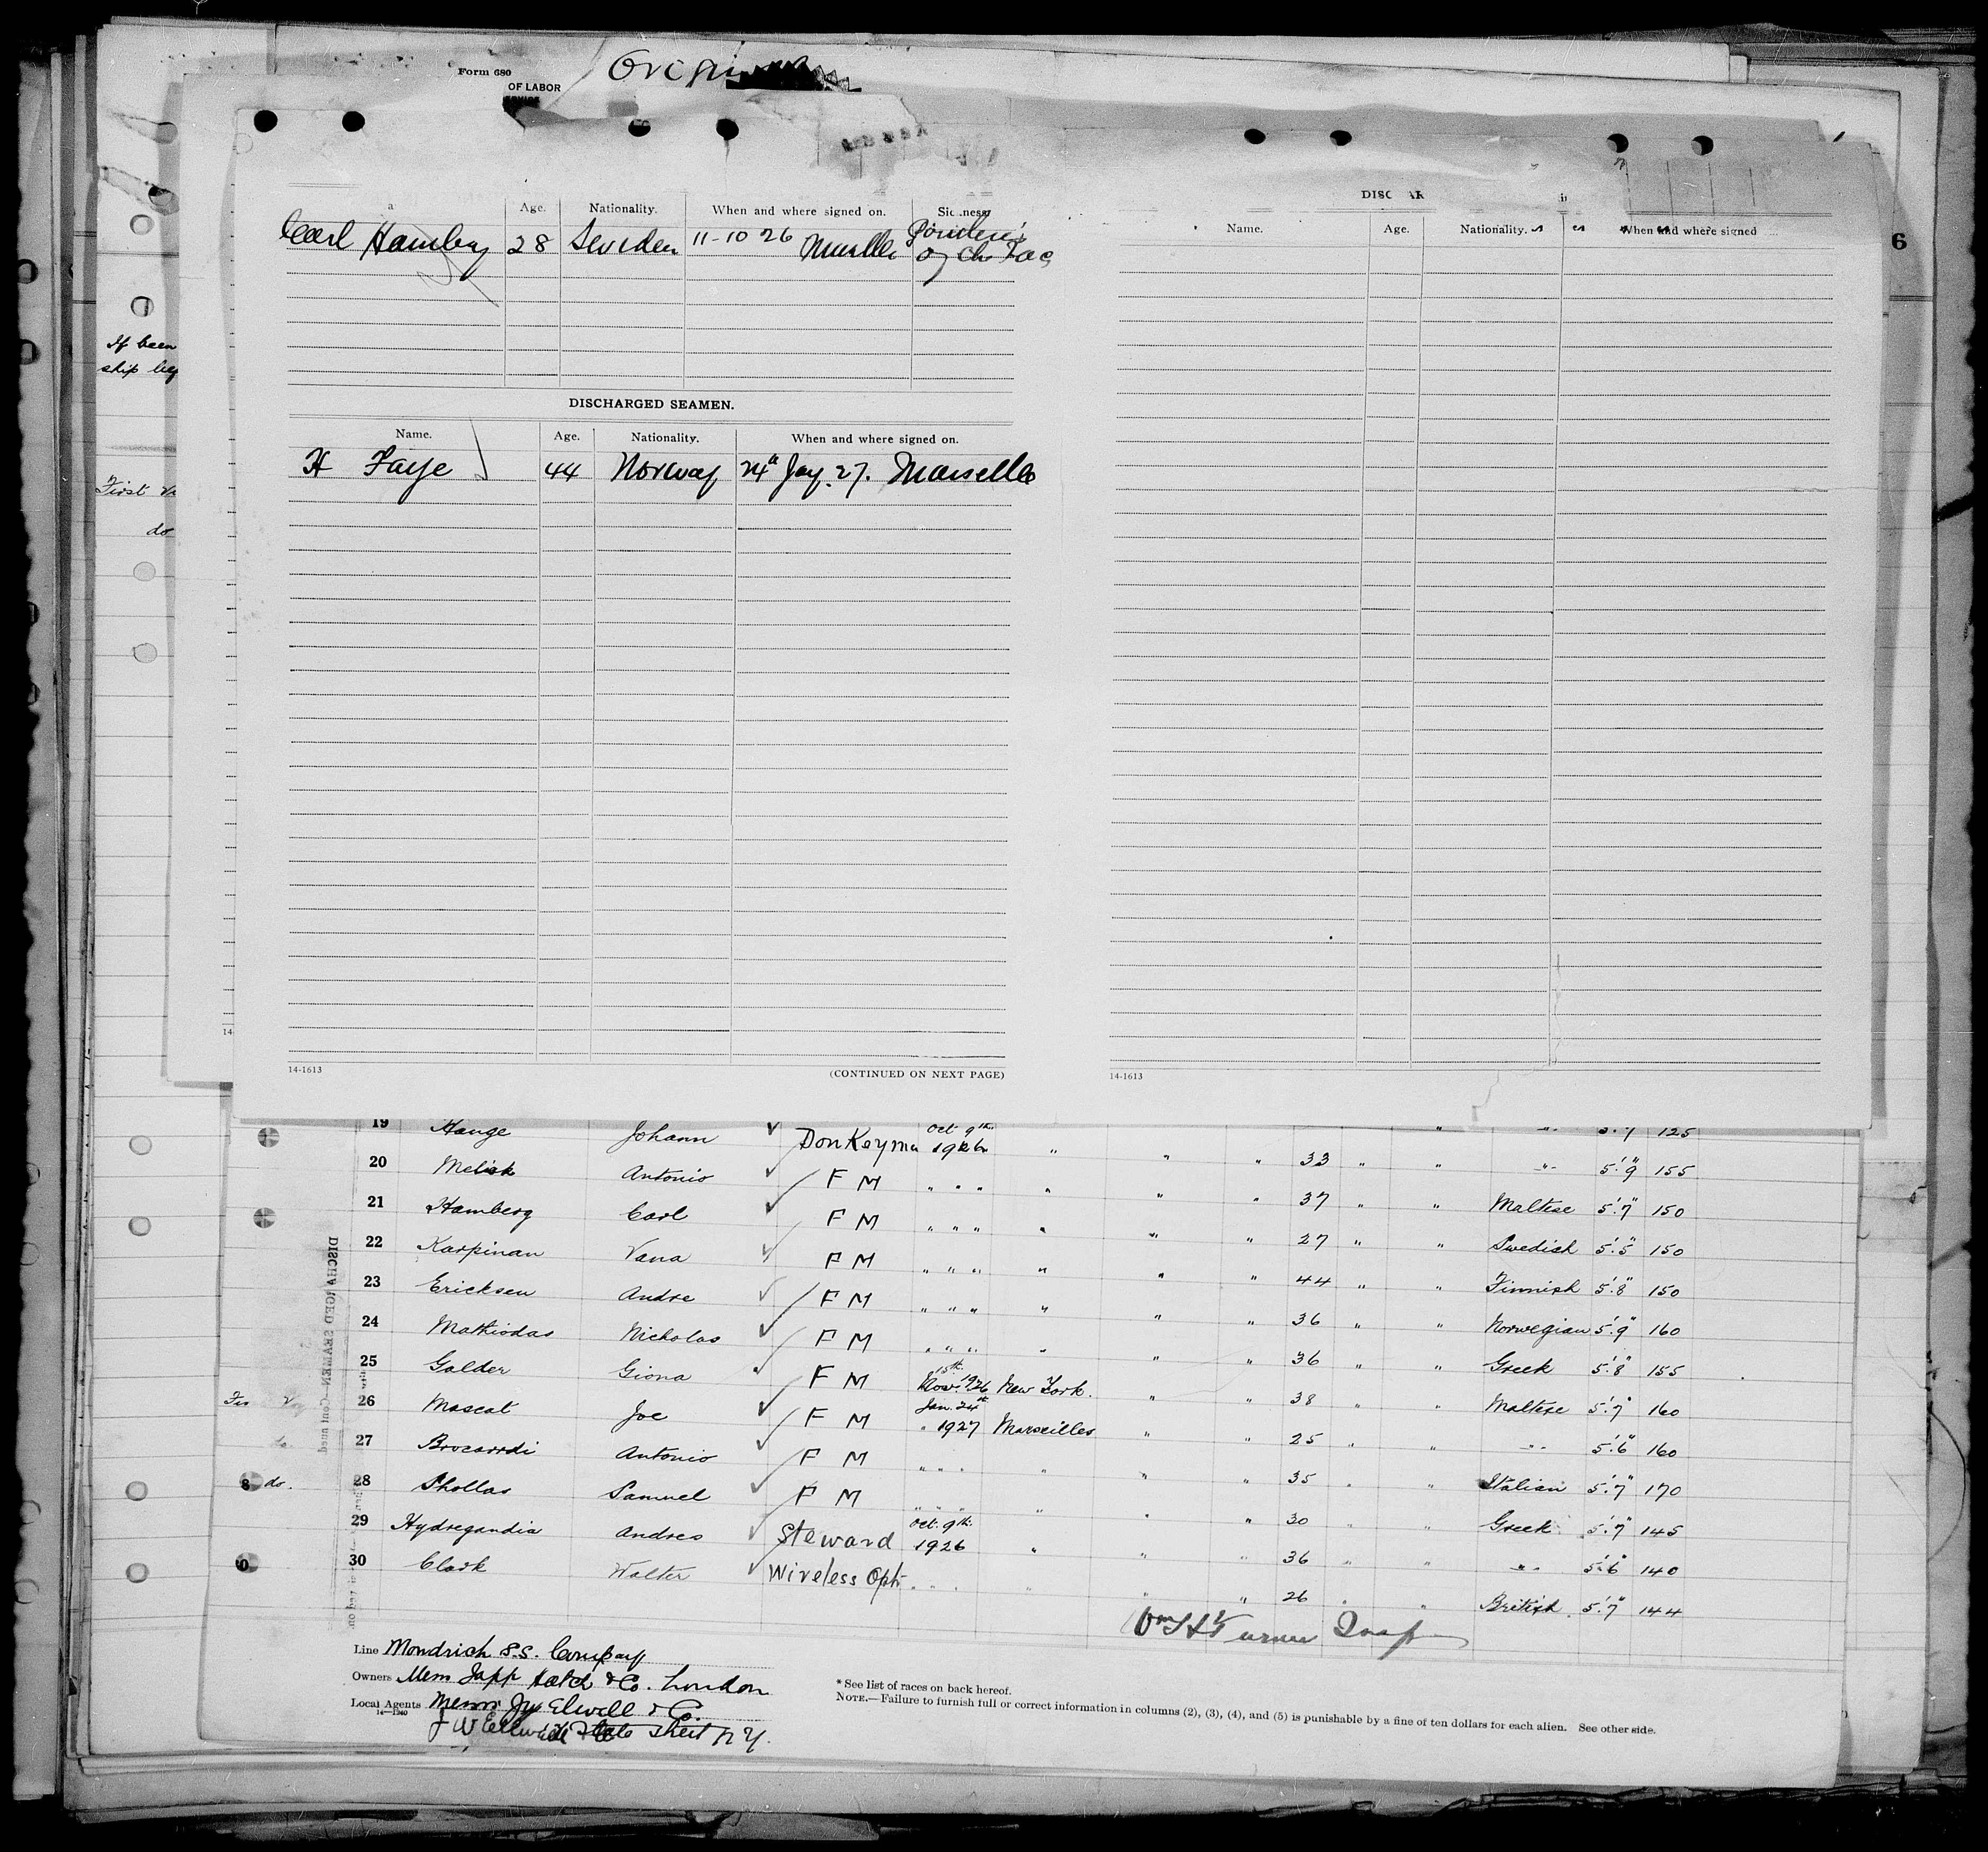 Form 680
OF LABOR
Age. Nationality. When and where signed on.
Carl Hamberg 28 Sweden 11-10 26
DISCHARGED SEAMEN.
Name. Age. Nationality. When and where signed on.
H Faye 44 Norway 24th Jay. 27. Marseilles
14-1613 (CONTINUED ON NEXT PAGE)
Name. Age. Nationality. When and where signed
14-1613
6
If been
ship
First
do
19 Hauge Johann Donkeyman Oct 9th 1926 " " 5'.7 125
20 Melisk Antonio F M " " " " " " 33 " " " 5'.9" 155
21 Hamberg Carl F M " " " " " " 37 " " Maltese 5'.7" 150
22 Karpinan Vana F M " " " " " " 27 " " Swedish 5'.5" 150
23 Ericksen Andre F M " " " " " " 44 " " Finnish 5'.8" 150
24 Mathiodas Nicholas F M " " " " " " 36 " " Norwegian 5'.9" 160
25 Galder Giona F M 15th Nov. 1926 New York. " " 36 " " Greek 5'.8" 155
26 Mascat Joe F M Jan. 24th " 1927 Marseilles " " 38 " " Maltese 5'.7" 160
27 Brocarrdi Antonio F M " " " " " " 25 " " " 5'.6" 160
28 Phollas Samuel F M " " " " " " 35 " " Italian 5'.7" 170
29 Hydregandia Andres Steward Oct. 9th. 1926 " " " 30 " " Greek 5'.7" 145
30 Clark Walter Wireless Optr " " " " " " 36 " " " 5'.6" 140
" " 26 " " British 5'.7" 144
do.
DISCHARGED SEAMEN—Continued
Turner Insp
Line Mondrich S.S. Company
Owners Japp Hatch & Co. London
Local Agents Elwell & Co.
14—1240
State Street N.Y.
* See list of races on back hereof.
NOTE.—Failure to furnish full or correct information in columns (2), (3), (4), and (5) is punishable by a fine of ten dollars for each alien. See other side.